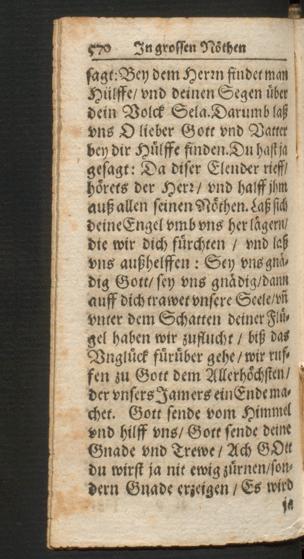 570 In grossen Nöthen
sagt: Bey dem Herrn findet man
Hülffe/ vnd deinen Segen über
dein Volck Sela. Darumb laß
vns O lieber Gott vnd Vatter
bey dir Hülffe finden. Du hast ja
gesagt: Da diser Elender rieff/
hörets der Herr/ vnd halff jhm
auß allen seinen Nöthen. Laß sich
deine Engel vmb vns her lägern/
die wir dich fürchten / vnd laß
vns außhelffen : Sey vns gnä-
dig Gott/ sey vns gnädig/ dann
auff dich trawet vnsere Seele/ vñ
vnter dem Schatten deiner Flü-
gel haben wir zuflucht / biß das
Vnglück fürüber gehe/ wir ruf-
fen zu Gott dem Allerhöchsten/
der vnsers Jamers ein Ende ma-
chet. Gott sende vom Himmel
vnd hilff vns/ Gott sende deine
Gnade vnd Trewe / Ach GOtt
du wirst ja nit ewig zürnen/ son-
dern Gnade erzeigen / Es wird
ja